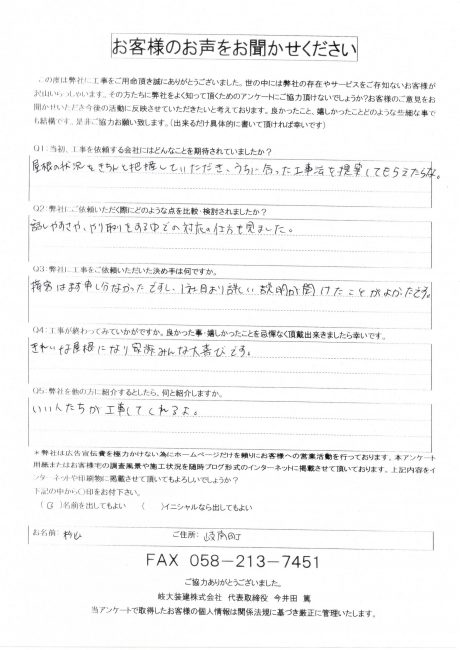 お客様のお声をお聞かせください
この度は弊社に工事をご用命頂き誠にありがとうございました。世の中には弊社の存在やサービスをご存知ないお客様が
沢山いらっしゃいます。その方たちに弊社をよく知って頂くためのアンケートにご協力頂けないでしょうか?お客様のご意見をお
聞かせいただき今後の活動に反映させていただきたいと考えております。良かったこと、嬉しかったことどのような些細な事で
も結構です。是非ご協力お願い致します。(出来るだけ具体的に書いて頂ければ幸いです)
Q1:当初、工事を依頼する会社にはどんなことを期待されていましたか?
屋根の状況をきちんと把握していただき、うちに合った工事法を提案してもらえたらな。
Q2:弊社にご依頼いただく際にどのような点を比較・検討されましたか?
話しやすさや、やり取りをする中での対応の仕方も見ました。
Q3:弊社に工事をご依頼いただいた決め手は何ですか。
指名はまず申し分なかったですし、1社目より詳しい説明が聞けたことがよかったです。
Q4:工事が終わってみていかがですか。良かった事・嬉しかったことを忌憚なく頂戴出来きましたら幸いです。
きれいな屋根になり家族みんな大喜びです。
Q5:弊社を他の方に紹介するとしたら、何と紹介しますか。
いい人たちが工事してくれるよ。
*弊社は広告宣伝費を極力かけない為にホームページだけを頼りにお客様への営業活動を行っております。本アンケート
用紙またはお客様宅の調査風景や施工状況を随時ブログ形式のインターネットに掲載させて頂いております。上記内容をイ
ンターネットや印刷物に掲載させて頂いてもよろしいでしょうか?
下記の中から〇印をお付下さい。
(〇)名前を出してもよい ( )イニシャルなら出してもよい
お名前: 杉山 ご住所: 岐南町
FAX 058-213-7451
ご協力ありがとうございました。
岐大装建株式会社 代表取締役 今井田 篤
当アンケートで取得したお客様の個人情報は関係法規に基づき厳正に管理いたします。